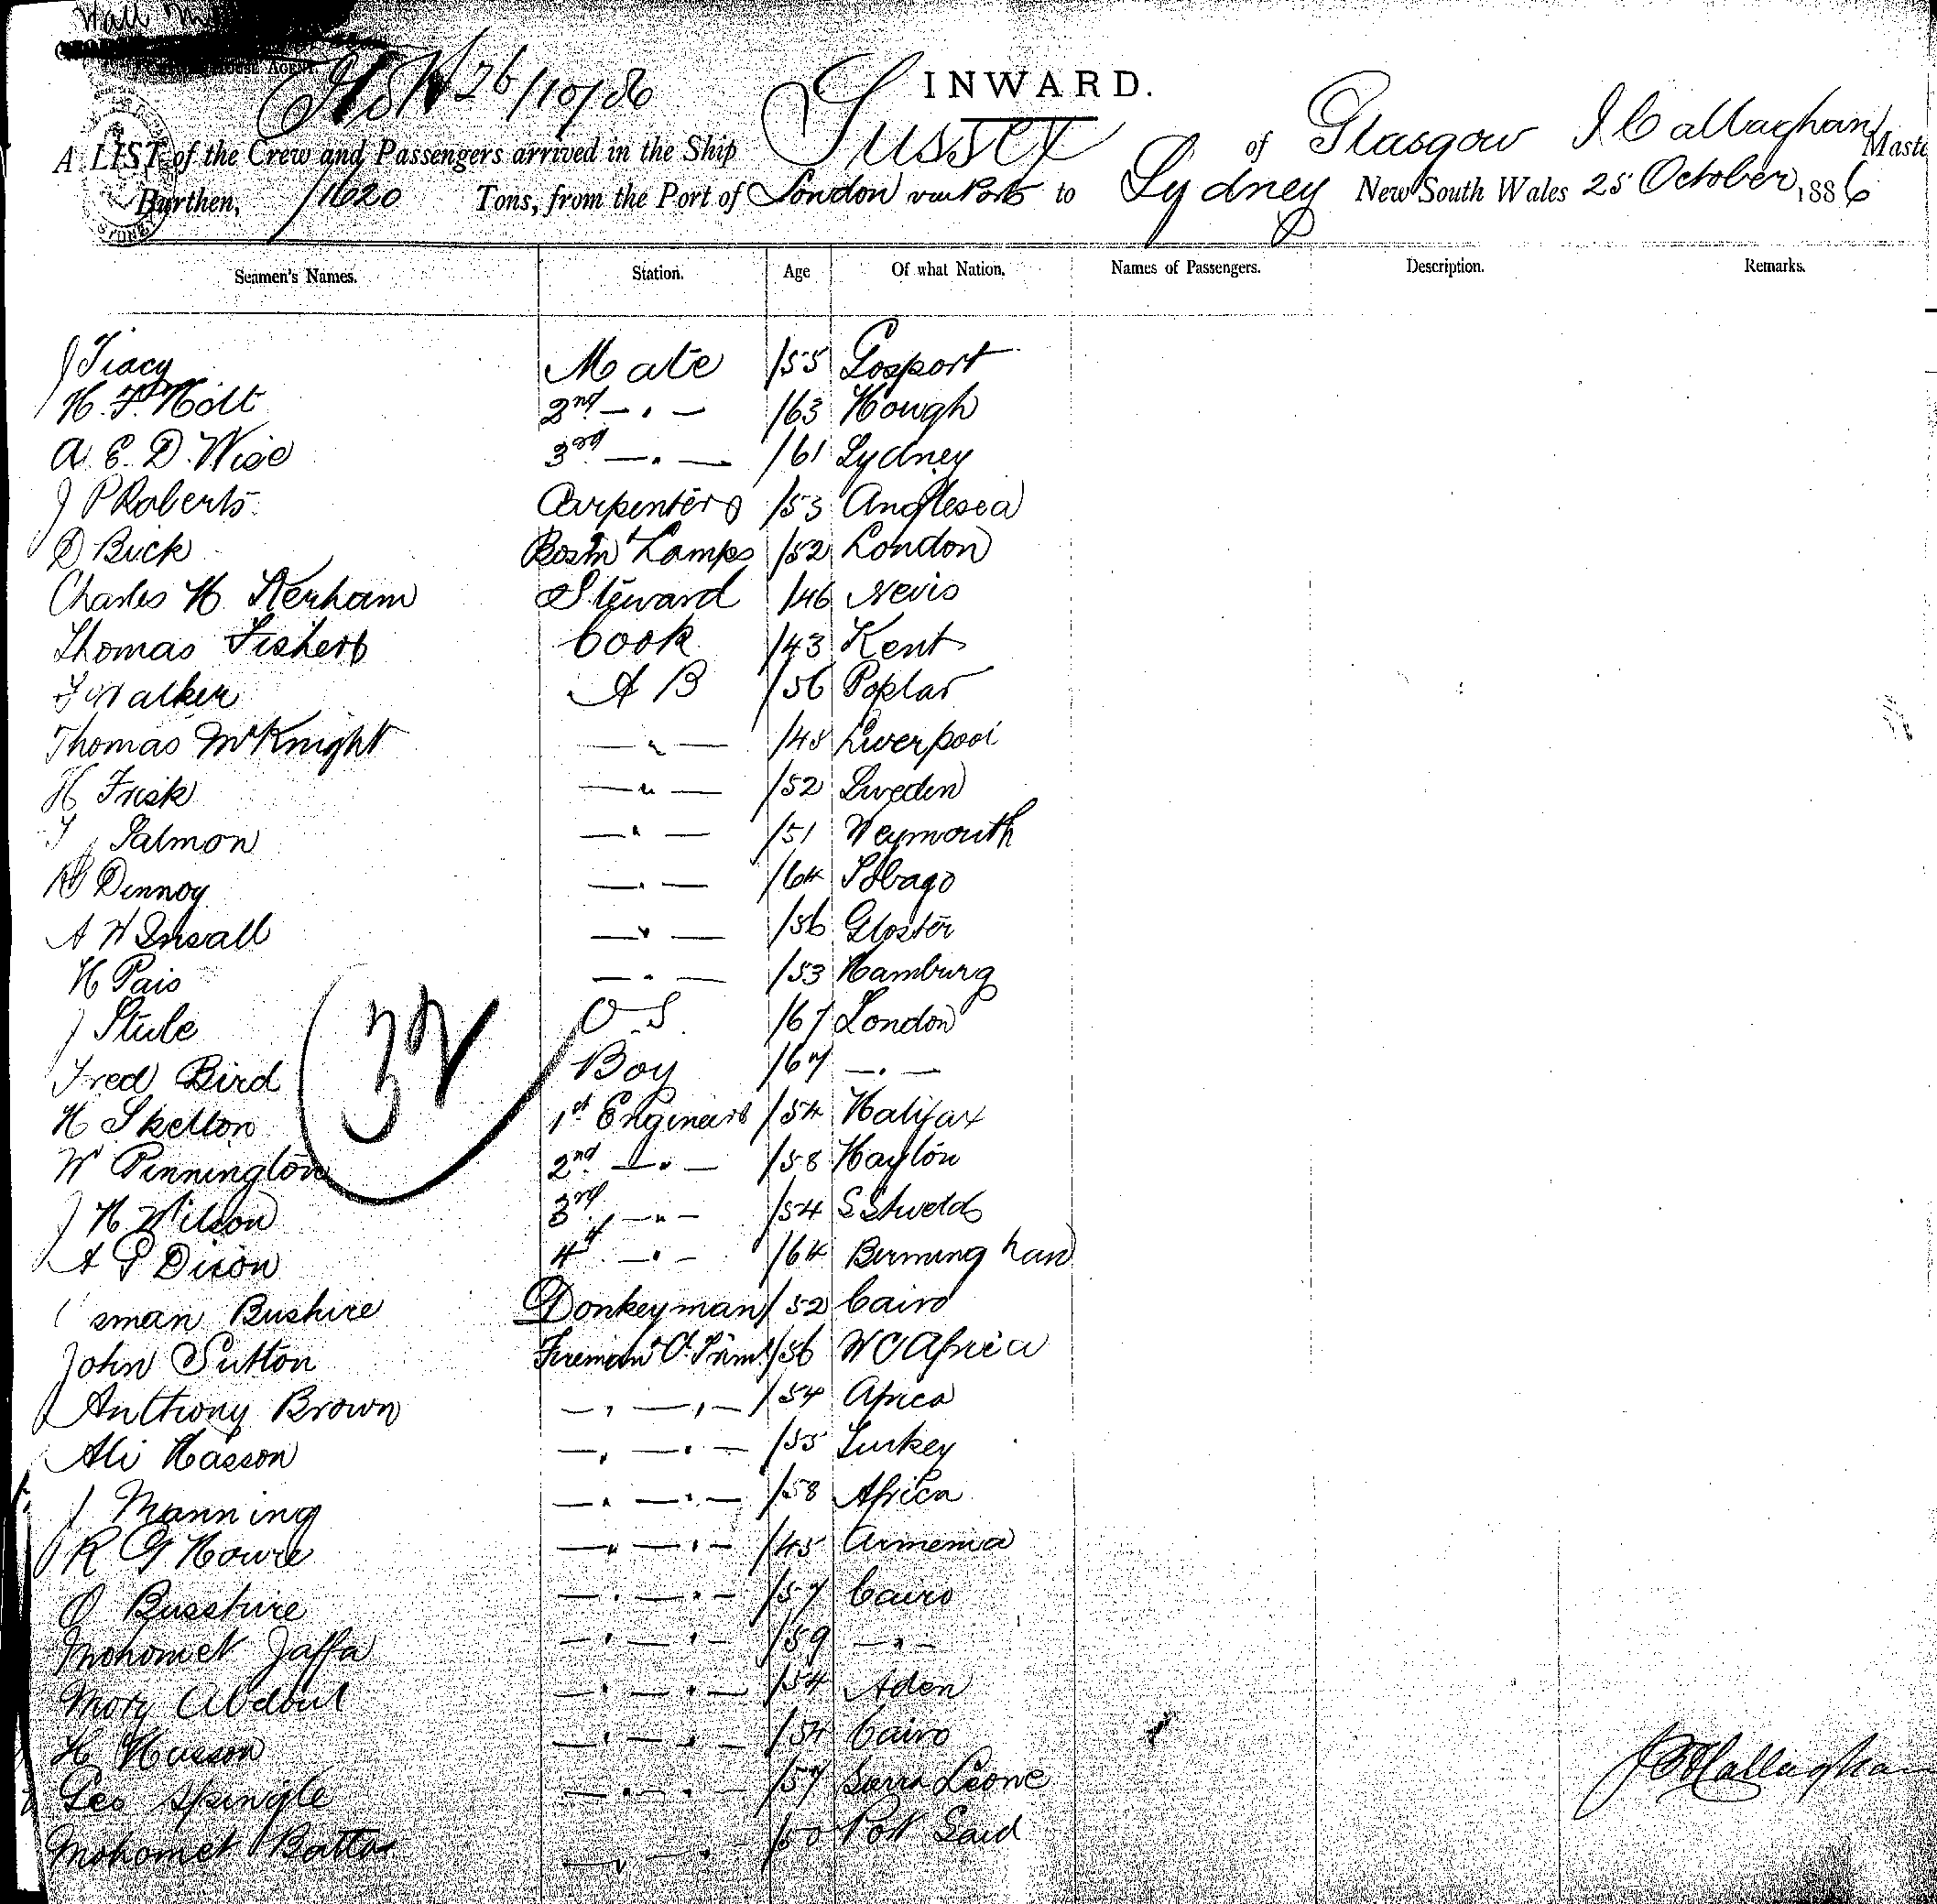 Wall
26/10/86
INWARD.
A LIST of the Crew and Passengers arrived in the Ship Sussex of Glasgow J Callaghan Maste
Burthen, 1620 Tons, from the Port of London via Ports to Sydney New South Wales 25 October, 1886
Seamen's Names. Station. Age Of what Nation. Names of Passengers. Description. Remarks.
J Tracy Mate /55 Gosport
H. F. Holt 2nd — " — /63 Hough
A. E. D. Wise 3rd — " — /61 Sydney
J P Roberts Carpenter /53 Anglesea
D Bick Bosn & Lamps /52 London
Charles H. Kerham Steward /46 Nevis
Thomas Fisher Cook /43 Kent
Walker A B /56 Poplar
Thomas McKnight — " — /48 Liverpool
H Frisk — " — /52 Sweden
Salmon — " — /51 Weymouth
Dennoy — " — /64 Tobago
A W Insall — " — /56 Gloster
H Pais — " — /53 Hamburg
J Stule O.S. /67 London
Fred Bird Boy /67 — " —
H Skelton 1st Engineer /54 Halifax
W Pennington 2nd — " — /58 Haylon
J H Wilson 3rd — " — /54 S
A G Dixon 4th — " — /64 Birmingham
sman Bushire Donkeyman /52 Cairo
John Sutton Fireman & Trim /56 W C Africa
Anthony Brown — " — " — /54 Africa
Ali Hasson — " — " — /55 Turkey
J Manning — " — " — /58 Africa
R G Howre — " — " — /45 Armenia
O Busshire — " — " — /57 Cairo
Mohomet Jaffa — " — " — /59 — " —
Mory Abdoul — " — " — /54 Aden
H Husson — " — " — /54 Cairo
Geo — " — " — /57 Sierra Leone
Mohomet Battas — " — " — /50 Port Said
32
J Callaghan